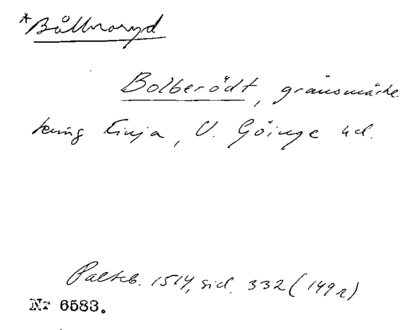 *Bållnaryd
Bolberödt, gränsmärke
kring Finja, V. Göinge hd.
Palteb. 1514, sid. 332 (149 r)
Nr 6583.